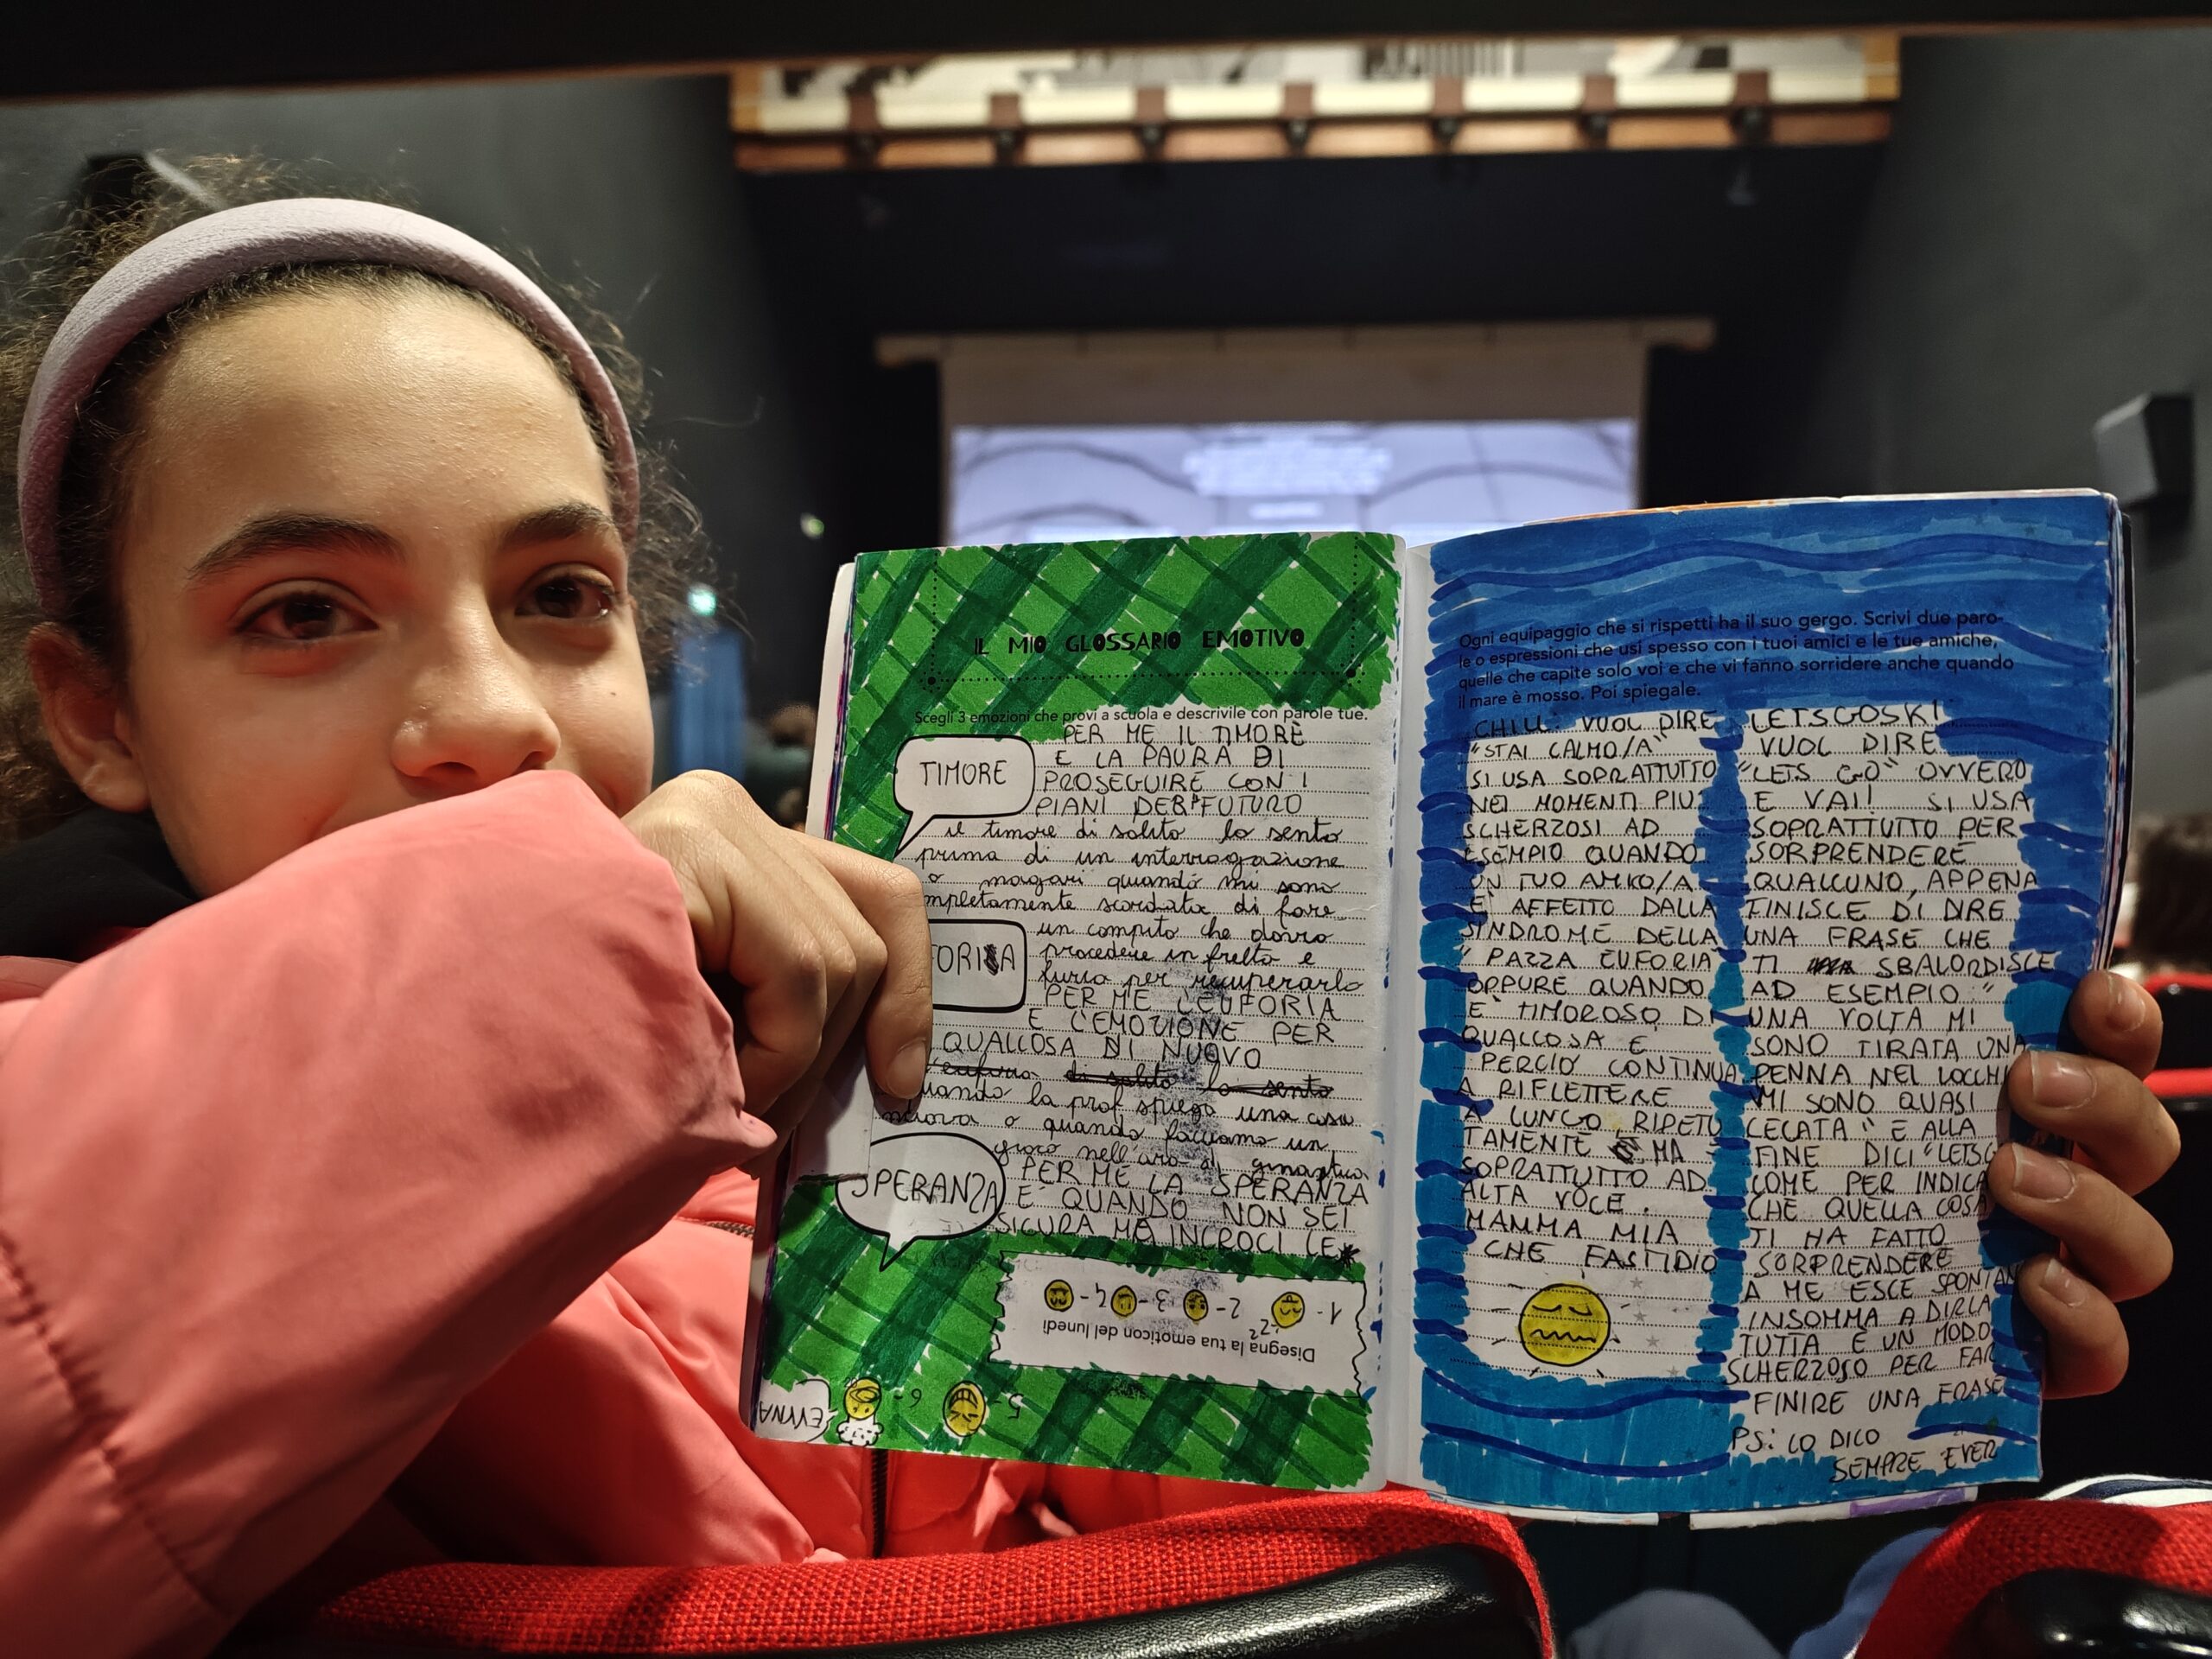 IL MIO GLOSSARIO EMOTIVO
Scegli 3 emozioni che provi a scuola e descrivile con parole tue.
TIMORE
PER ME IL TIMORE
È LA PAURA DI
PROSEGUIRE CON I
PIANI DEL FUTURO
il timore di solito lo sento
prima di un interrogazione
o magari quando mi sono
mpletamente scordata di fare
un compito che dovrò
procedere in fretta e
furia per recuperarlo
FORIA
PER ME L'EUFORIA
È L'EMOZIONE PER
QUALCOSA DI NUOVO
euforia di solito lo sento
uando la prof spiega una cosa
nuova o quando facciamo un
gioco nell'ora di ginnastica
SPERANZA
PER ME LA SPERANZA
È QUANDO NON SEI
SICURA MA INCROCI LE
Disegna la tua emoticon del lunedì
1- 2- 3- 4-
5- 6-
Ogni equipaggio che si rispetti ha il suo gergo. Scrivi due paro-
le o espressioni che usi spesso con i tuoi amici e le tue amiche,
quelle che capite solo voi e che vi fanno sorridere anche quando
il mare è mosso. Poi spiegale.
CHILL: VUOL DIRE
"STAI CALMO/A"
SI USA SOPRATTUTTO
NEI MOMENTI PIU'
SCHERZOSI AD
ESEMPIO QUANDO
UN TUO AMICO/A
È AFFETTO DALLA
SINDROME DELLA
"PAZZA EUFORIA
OPPURE QUANDO
È TIMOROSO DI
QUALCOSA E
PERCIÒ CONTINUA
A RIFLETTERE
A LUNGO RIPETU
TAMENTE MA
SOPRATTUTTO AD
ALTA VOCE.
MAMMA MIA
CHE FASTIDIO
LETSGOSKI
VUOL DIRE
"LETS GO" OVVERO
E VAI! SI USA
SOPRATTUTTO PER
SORPRENDERE
QUALCUNO, APPENA
FINISCE DI DIRE
UNA FRASE CHE
TI SBALORDISCE
AD ESEMPIO "
UNA VOLTA MI
SONO TIRATA UNA
PENNA NEL LOCCHI
MI SONO QUASI
CECATA" E ALLA
FINE DICI "LETSG
COME PER INDICA
CHE QUELLA COSA
TI HA FATTO
SORPRENDERE
A ME ESCE SPONTAN
INSOMMA A DIRLA
TUTTA È UN MODO
SCHERZOSO PER FAR
FINIRE UNA FRASE
PS: LO DICO
SEMPRE EVER